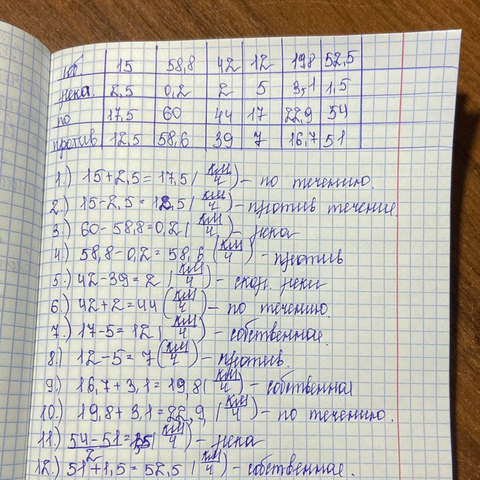 соб. 15 58,8 42 12 19,8 52,5
река 2,5 0,2 2 5 3,1 1,5
по 17,5 60 44 17 22,9 54
против 12,5 58,6 39 7 16,7 51
1.) 15+2,5=17,5 (км/ч) – по течению.
2.) 15-2,5=12,5 (км/ч) – против течение
3.) 60-58,8=0,2 (км/ч) – река
4.) 58,8-0,2=58,6 (км/ч) – против
5.) 42-39=2 (км/ч) – скор. реки
6.) 42+2=44 (км/ч) – по течению.
7.) 17-5=12 (км/ч) – собственная.
8.) 12-5=7 (км/ч) – против.
9.) 16,7+3,1=19,8 (км/ч) – собственная
10.) 19,8+3,1=22,9 (км/ч) – по течению.
11.) (54-51)/2=1,5 (км/ч) – река
12.) 51+1,5=52,5 (км/ч) – собственное.